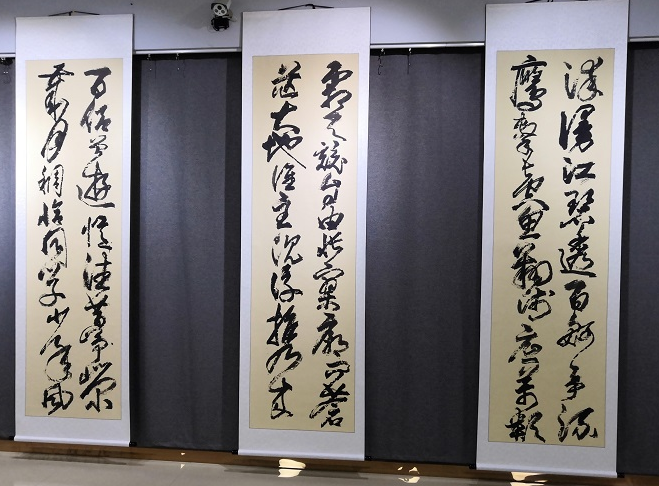 染漫江碧透百舸争流
鷹擊长空魚翔浅底萬類
霜天競自由怅寥廓问苍
茫大地谁主沉浮携来
百侣曾遊忆往昔峥嵘
歲月稠恰同学少年风